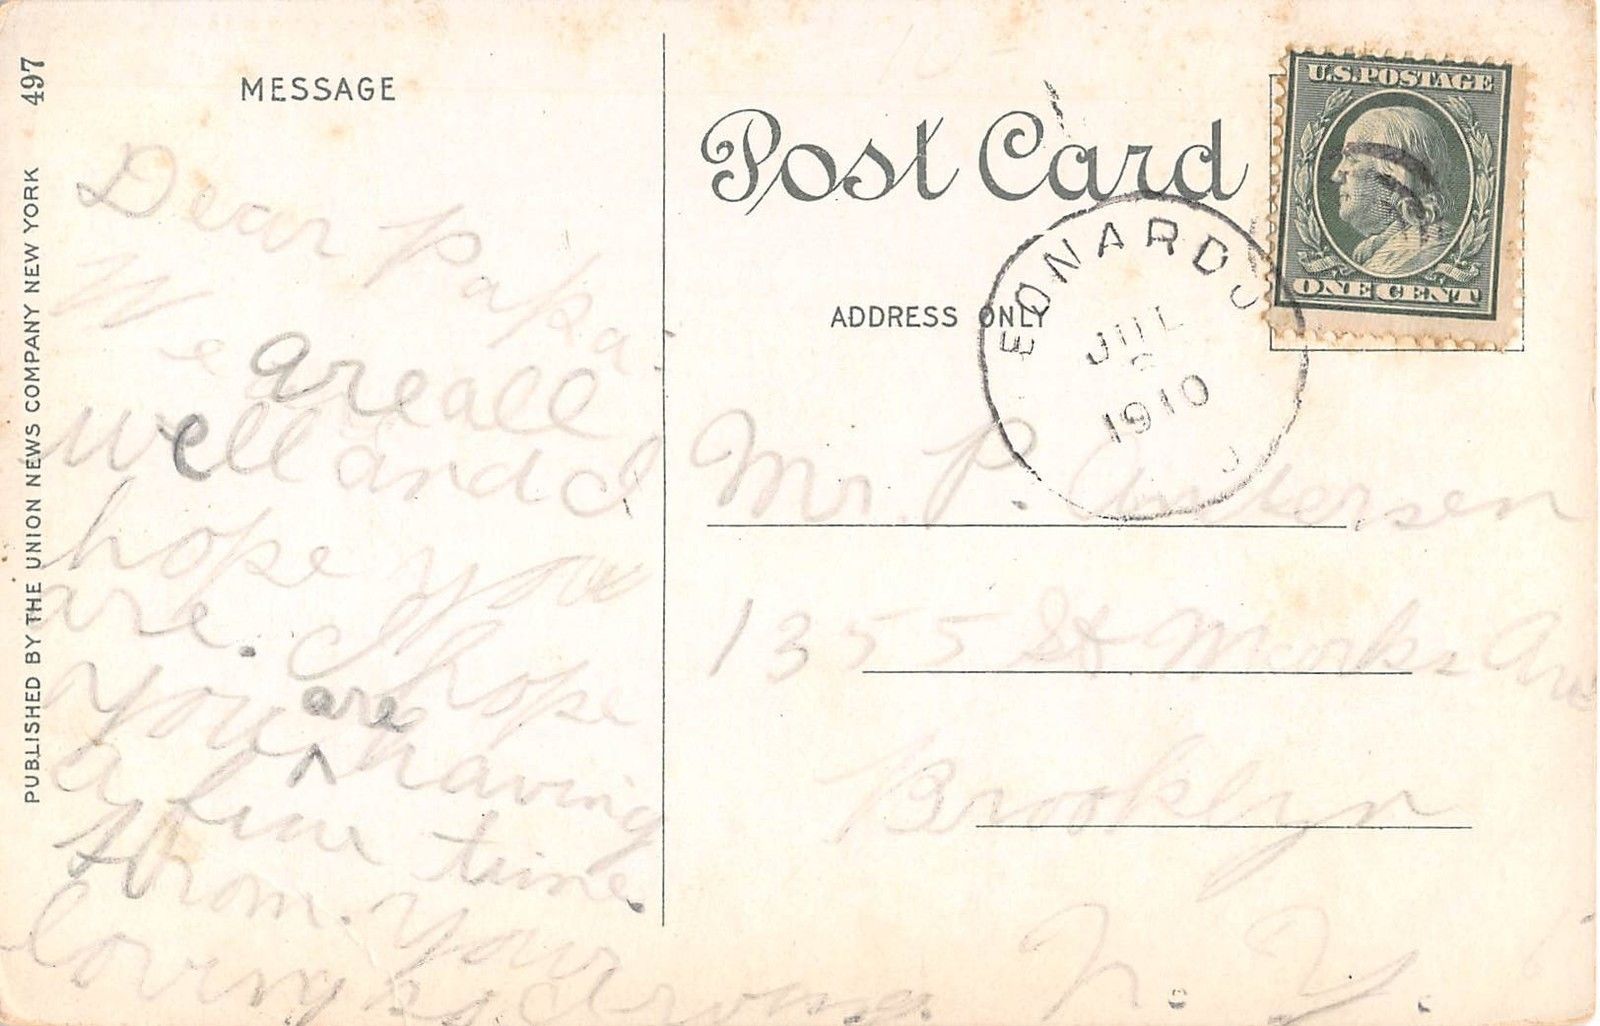 497
PUBLISHED BY THE UNION NEWS COMPANY NEW YORK
MESSAGE
Dear Papa.
We are all
well and I
hope you
are. I hope
you are having
a fine time.
From your
loving
Post Card
ADDRESS ONLY
U.S. POSTAGE
ONE CENT
JUL
1910
Mr. P. Andersen
1355 St Marks Ave
Brooklyn
N. Y.